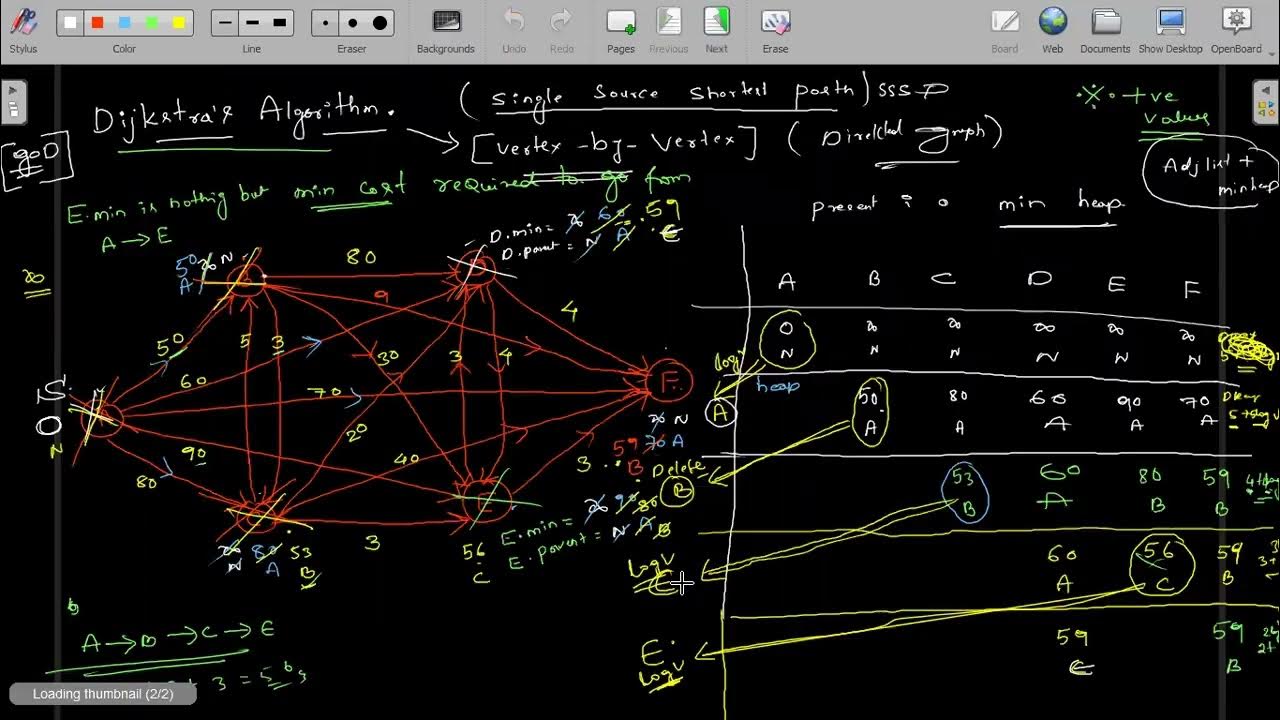 Stylus
Color
Line
Eraser
Backgrounds
Undo
Redo
Pages
Previous
Next
Erase
Board
Web
Documents
Show Desktop
OpenBoard
Dijkstra's Algorithm.
(single source shortest path) SSSP
+ve
values
goD
[vertex-by-vertex] (Directed graph)
Adj list +
minheap
E.min is nothing but min cost required to go from
A → E
present : 0 min heap
D.min = ∞ 60 59
D.parent = N A E
∞
50 ∞ N
A
80
9
4
50
5 3
30
3 4
60
70
20
90
40
80
3
3
S.
0
N
F.
∞ N
59 70 A
B
∞ 80 53
N A B
56
C
E.min = ∞ 90 80
E.parent = N A B
A B C D E F
0 ∞ ∞ ∞ ∞ ∞
N N N N N N
logV
heap
A
50 80 60 90 70
A A A A A
Delete
B
53 60 80 59
B A B B
logV
C
60 56 59
A C B
E
logV
59 59
E B
A → B → C → E
+ 3 = 56
Loading thumbnail (2/2)